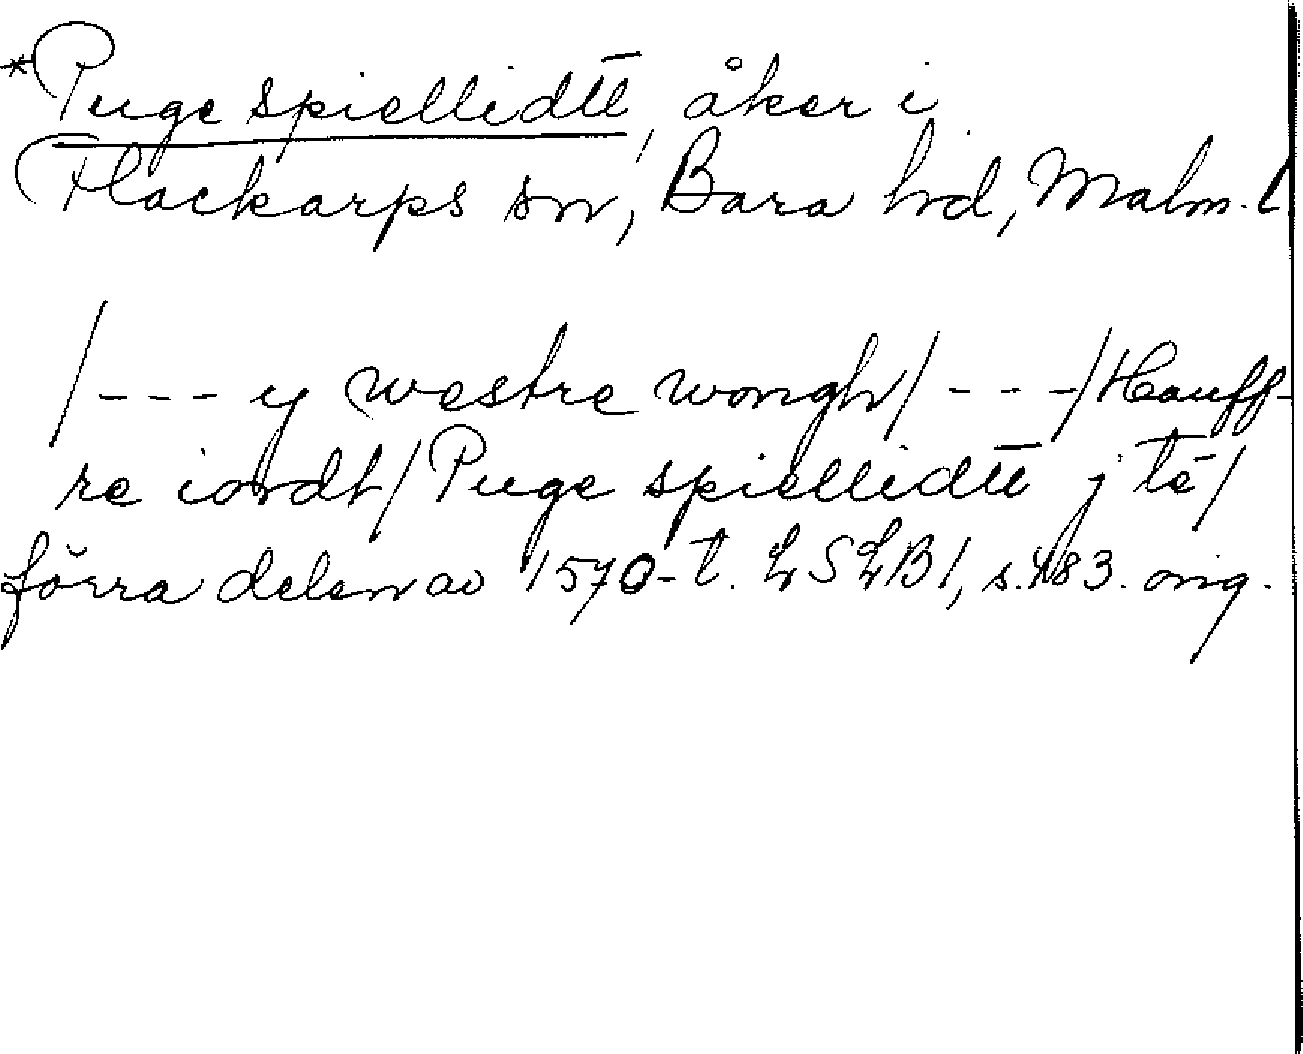 *Puge spiellidtt̄, åker i
Flackarps sn, Bara hd, Malm. l
/--- y westre wongh/---/Hauff-
re iordt/Puge spiellidtt̄ j tē/
förra delen av 1570-t. LSLB1, s. 183. orig.